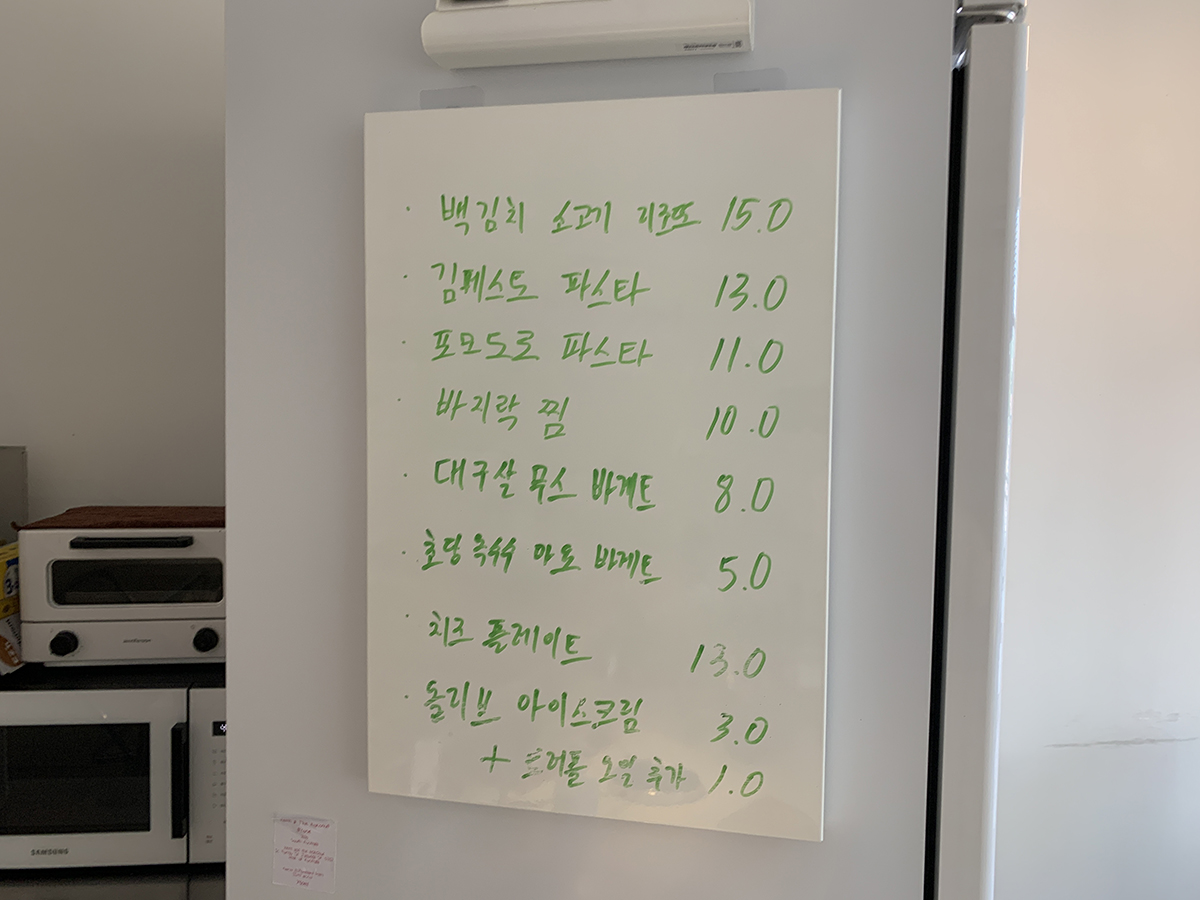 · 백김치 소고기 리조또 15.0
· 김페스토 파스타 13.0
· 포모도로 파스타 11.0
· 바지락 찜 10.0
· 대구살 무스 바게트 8.0
· 초당 옥수수 마요 바게트 5.0
· 치즈 플레이트 13.0
· 올리브 아이스크림 3.0
+ 트러플 오일 추가 1.0
SAMSUNG